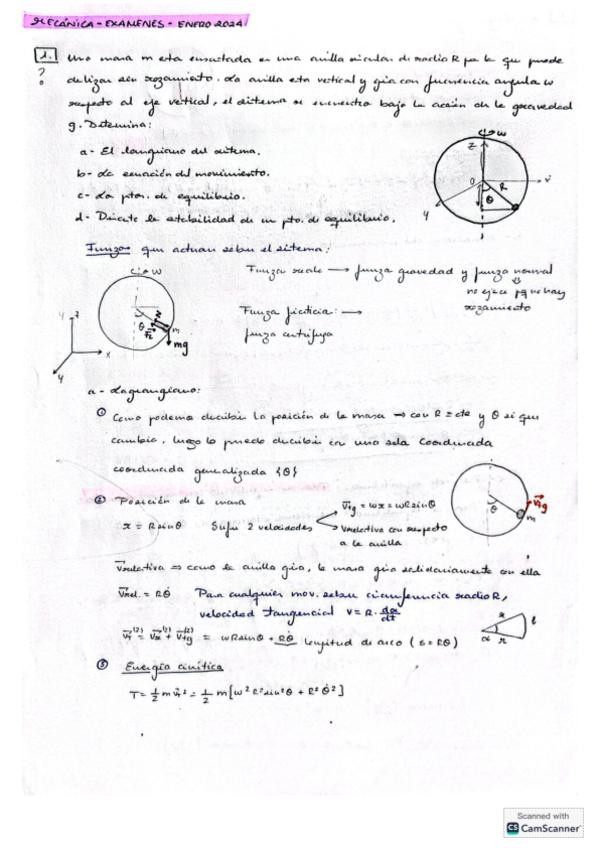 MECÁNICA - EXAMENES - ENERO 2024
1. Una masa m esta ensartada en una anilla circular de radio R por la que puede
?
delizar sin rozamiento. La anilla esta vertical y gira con frecuencia angular w
respecto al eje vertical, el sistema se encuentra bajo la acción de la gravedad
g. Determina:
a- El langrangiano del sistema.
b- La ecuación del movimiento.
c- Los ptos. de equilibrio.
d- Discute la estabilidad de un pto. de equilibrio.
w
z
O
R
θ
y
Fuerzas que actuan sobre el sistema:
w
θ
N
m
mg
z
x
y
Fuerza reale → fuerza gravedad y fuerza normal
no ejerce pq no hay
rozamiento
Fuerza ficticia: →
fuerza centrífuga
a- Lagrangiano:
① Como podemos describir la posición de la masa → con R = cte y θ si que
cambia, luego lo puedo describir con una sola coordenada
coordenada generalizada {θ}
② Posición de la masa
x = R sinθ Sufre 2 velocidades
Vtg = wx = wR sinθ
Vrelativa con respecto
a la anilla
θ
m
Vtg
Vrelativa ⇒ como la anilla gira, la masa gira solidariamente con ella
Vrel. = Rθ̇ Para cualquier mov. sobre circunferencia radio R,
velocidad tangencial V = R · dα/dt
= wR sinθ + Rθ̇ longitud de arco (s = Rθ)
α
③ Energía cinética
T = 1/2 m v² = 1/2 m [w² R² sin²θ + R² θ̇²]
Scanned with
CS CamScanner